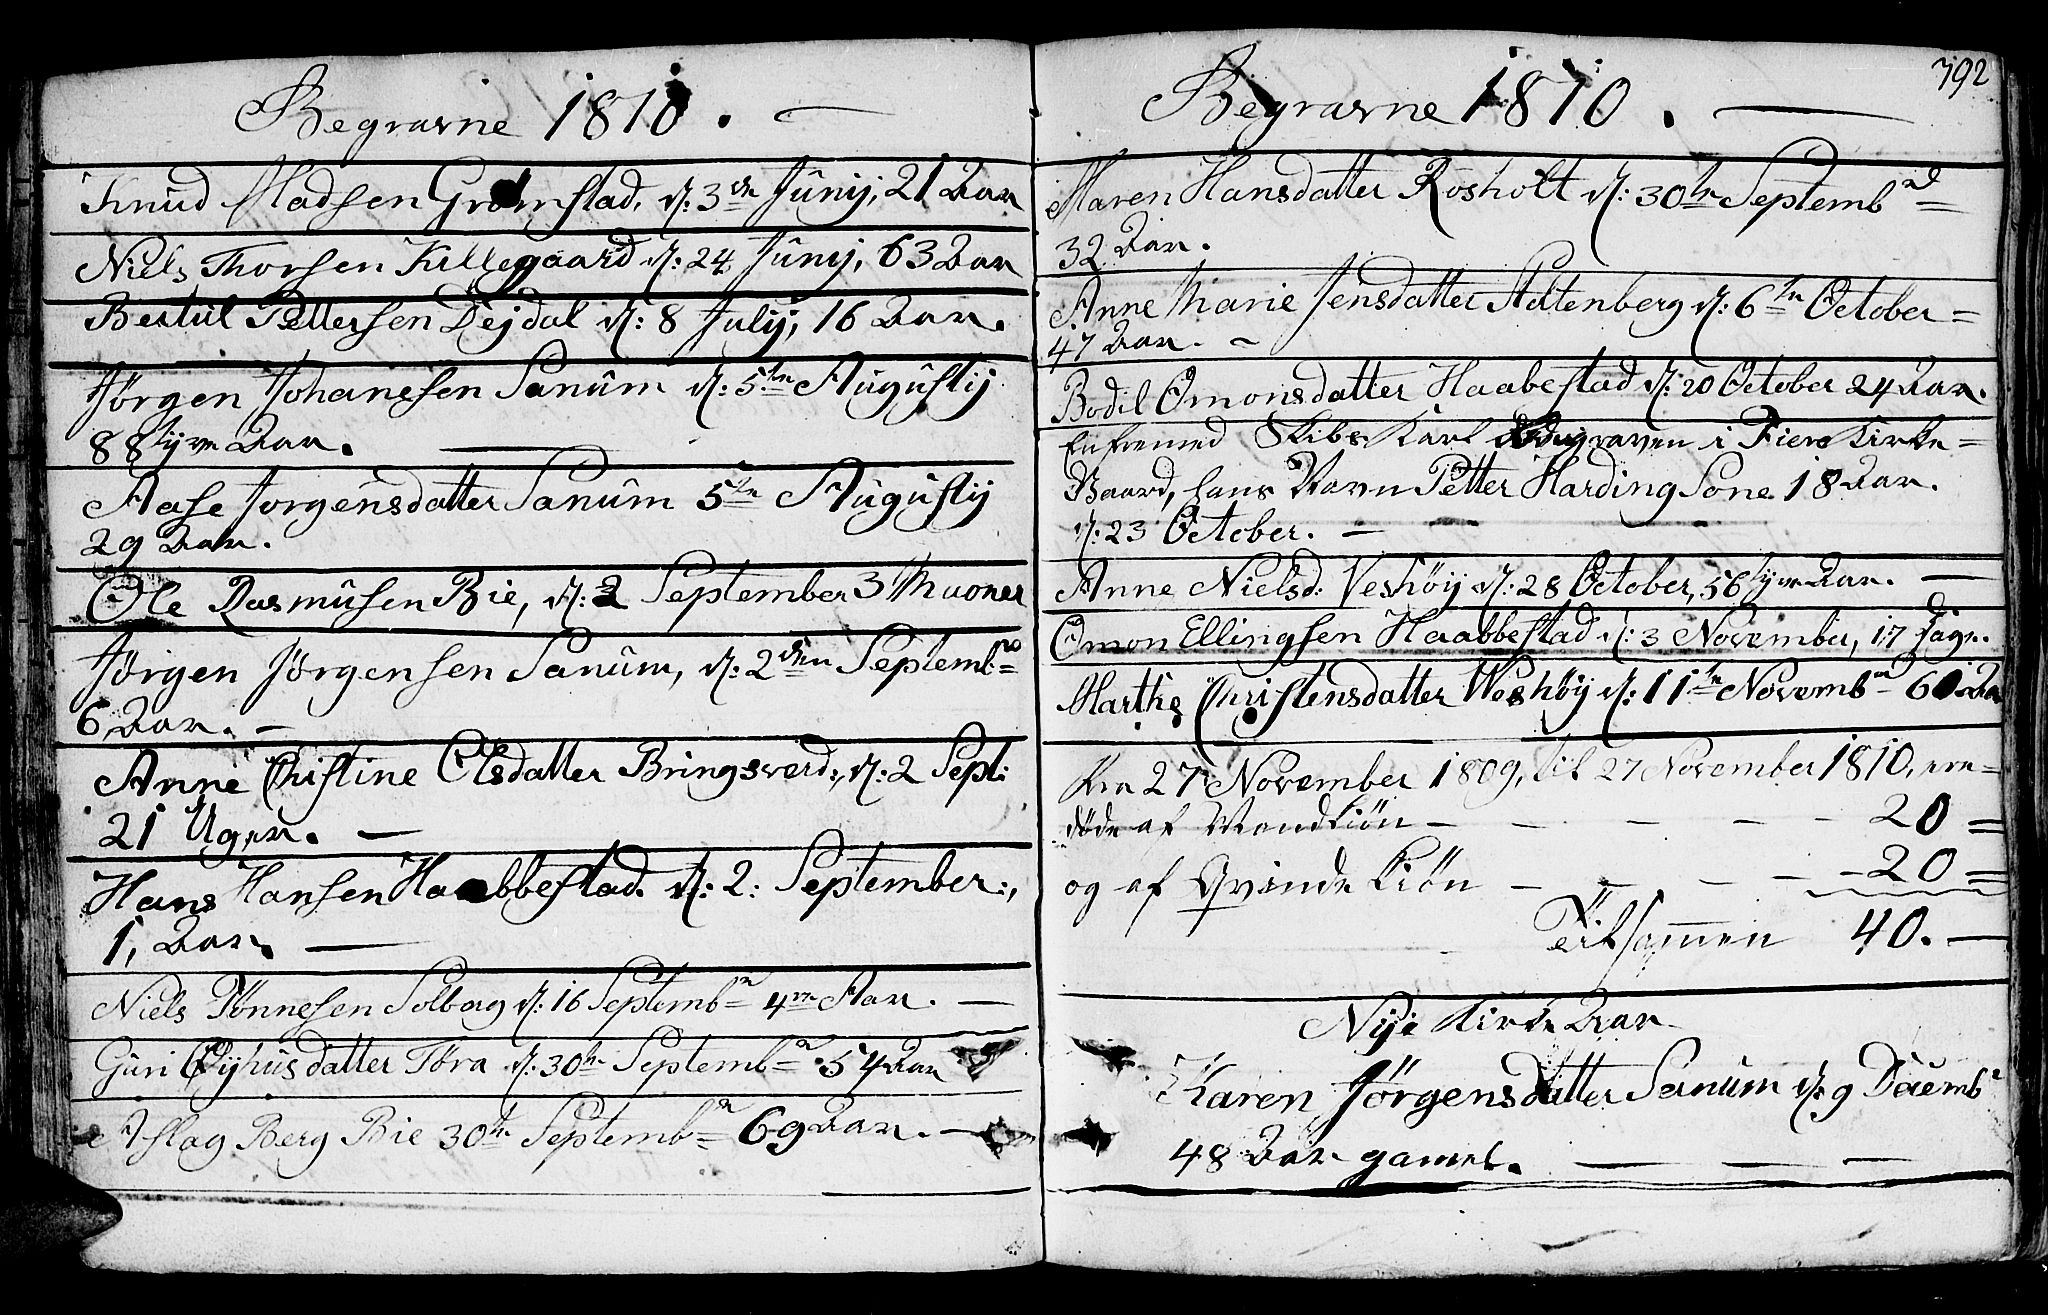 Begravne 1810. —
Knud Madsen Grømstad, d: 3de Junij, 21 Aar
Niels Thorsen Killegaard d: 24 Junij, 63 Aar
Bertul Pettersen Dejdal d: 8 Julij, 16 Aar.
Jørgen Johanesen Sanum d: 5te Augustij
88tyve Aar. —
Aase Jorgensdatter Sanum 5te Augustij
29 Aar.
Ole Rasmusen Bie, d: 2 September 3 Maaner
Jørgen Jørgensen Sanum, d: 2den Septembr
6 Aar. —
Anne Christine Olsdatter Bringsverd, d: 2 Sept:
21 Uger. —
Hans Hansen Haabbestad. d: 2: September:,
1, Aar. —
Niels Tønnesen Solborg d: 16 Septembr 4re Aar. —
Guri datter Tøra d: 30te Septembr 54 Aar
Aslag Berg Bie 30te Septembr 69 Aar. —
792
Begravne 1810. —
Maren Hansdatter Rosholt d: 30te Septembr
32 Aar.
Anne Marie Jensdatter Altenberg d: 6te October
47 Aar. —
Bodil Omonsdatter Haabestad d: 20 October 24 Aar.
En fremed Skibs Karl begraven i Fiere Kirke=
Gaard, hans Navn Petter Harding Sone 18 Aar.
d: 23 October. —
Anne Nielsd: Veshøy d: 28 October, 56tyve Aar. —
Omon Ellingsen Haabbestad d: 3 November, 17 Dage.
Marthe Christensdatter Weshøy d: 11te Novembr 60 Aar
Fra 27 November 1809, til 27 November 1810, ere
døde af Mandkiøn — — — — 20 =
og af Qvinde Kiøn — — — — 20 =
Tilsammen 40. —
Nye Kirke Aar
Karen Jørgensdatter Sanum d: 9 Decembr
48 Aar gamel. — — —